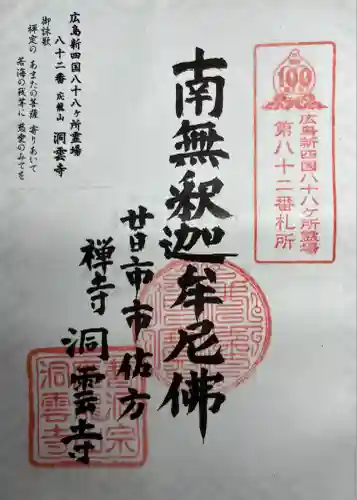 100
広島新四国八十八ケ所霊場
第八十二番札所
南無釈迦牟尼佛
廿日市市佑方
禅寺 洞雲寺
曹洞宗
洞雲寺
広島新四国八十八ヶ所霊場
八十二番 応龍山 洞雲寺
御詠歌
禅定の あまたの菩薩 寄りあいて
苦海の我等に 慈愛のみてを